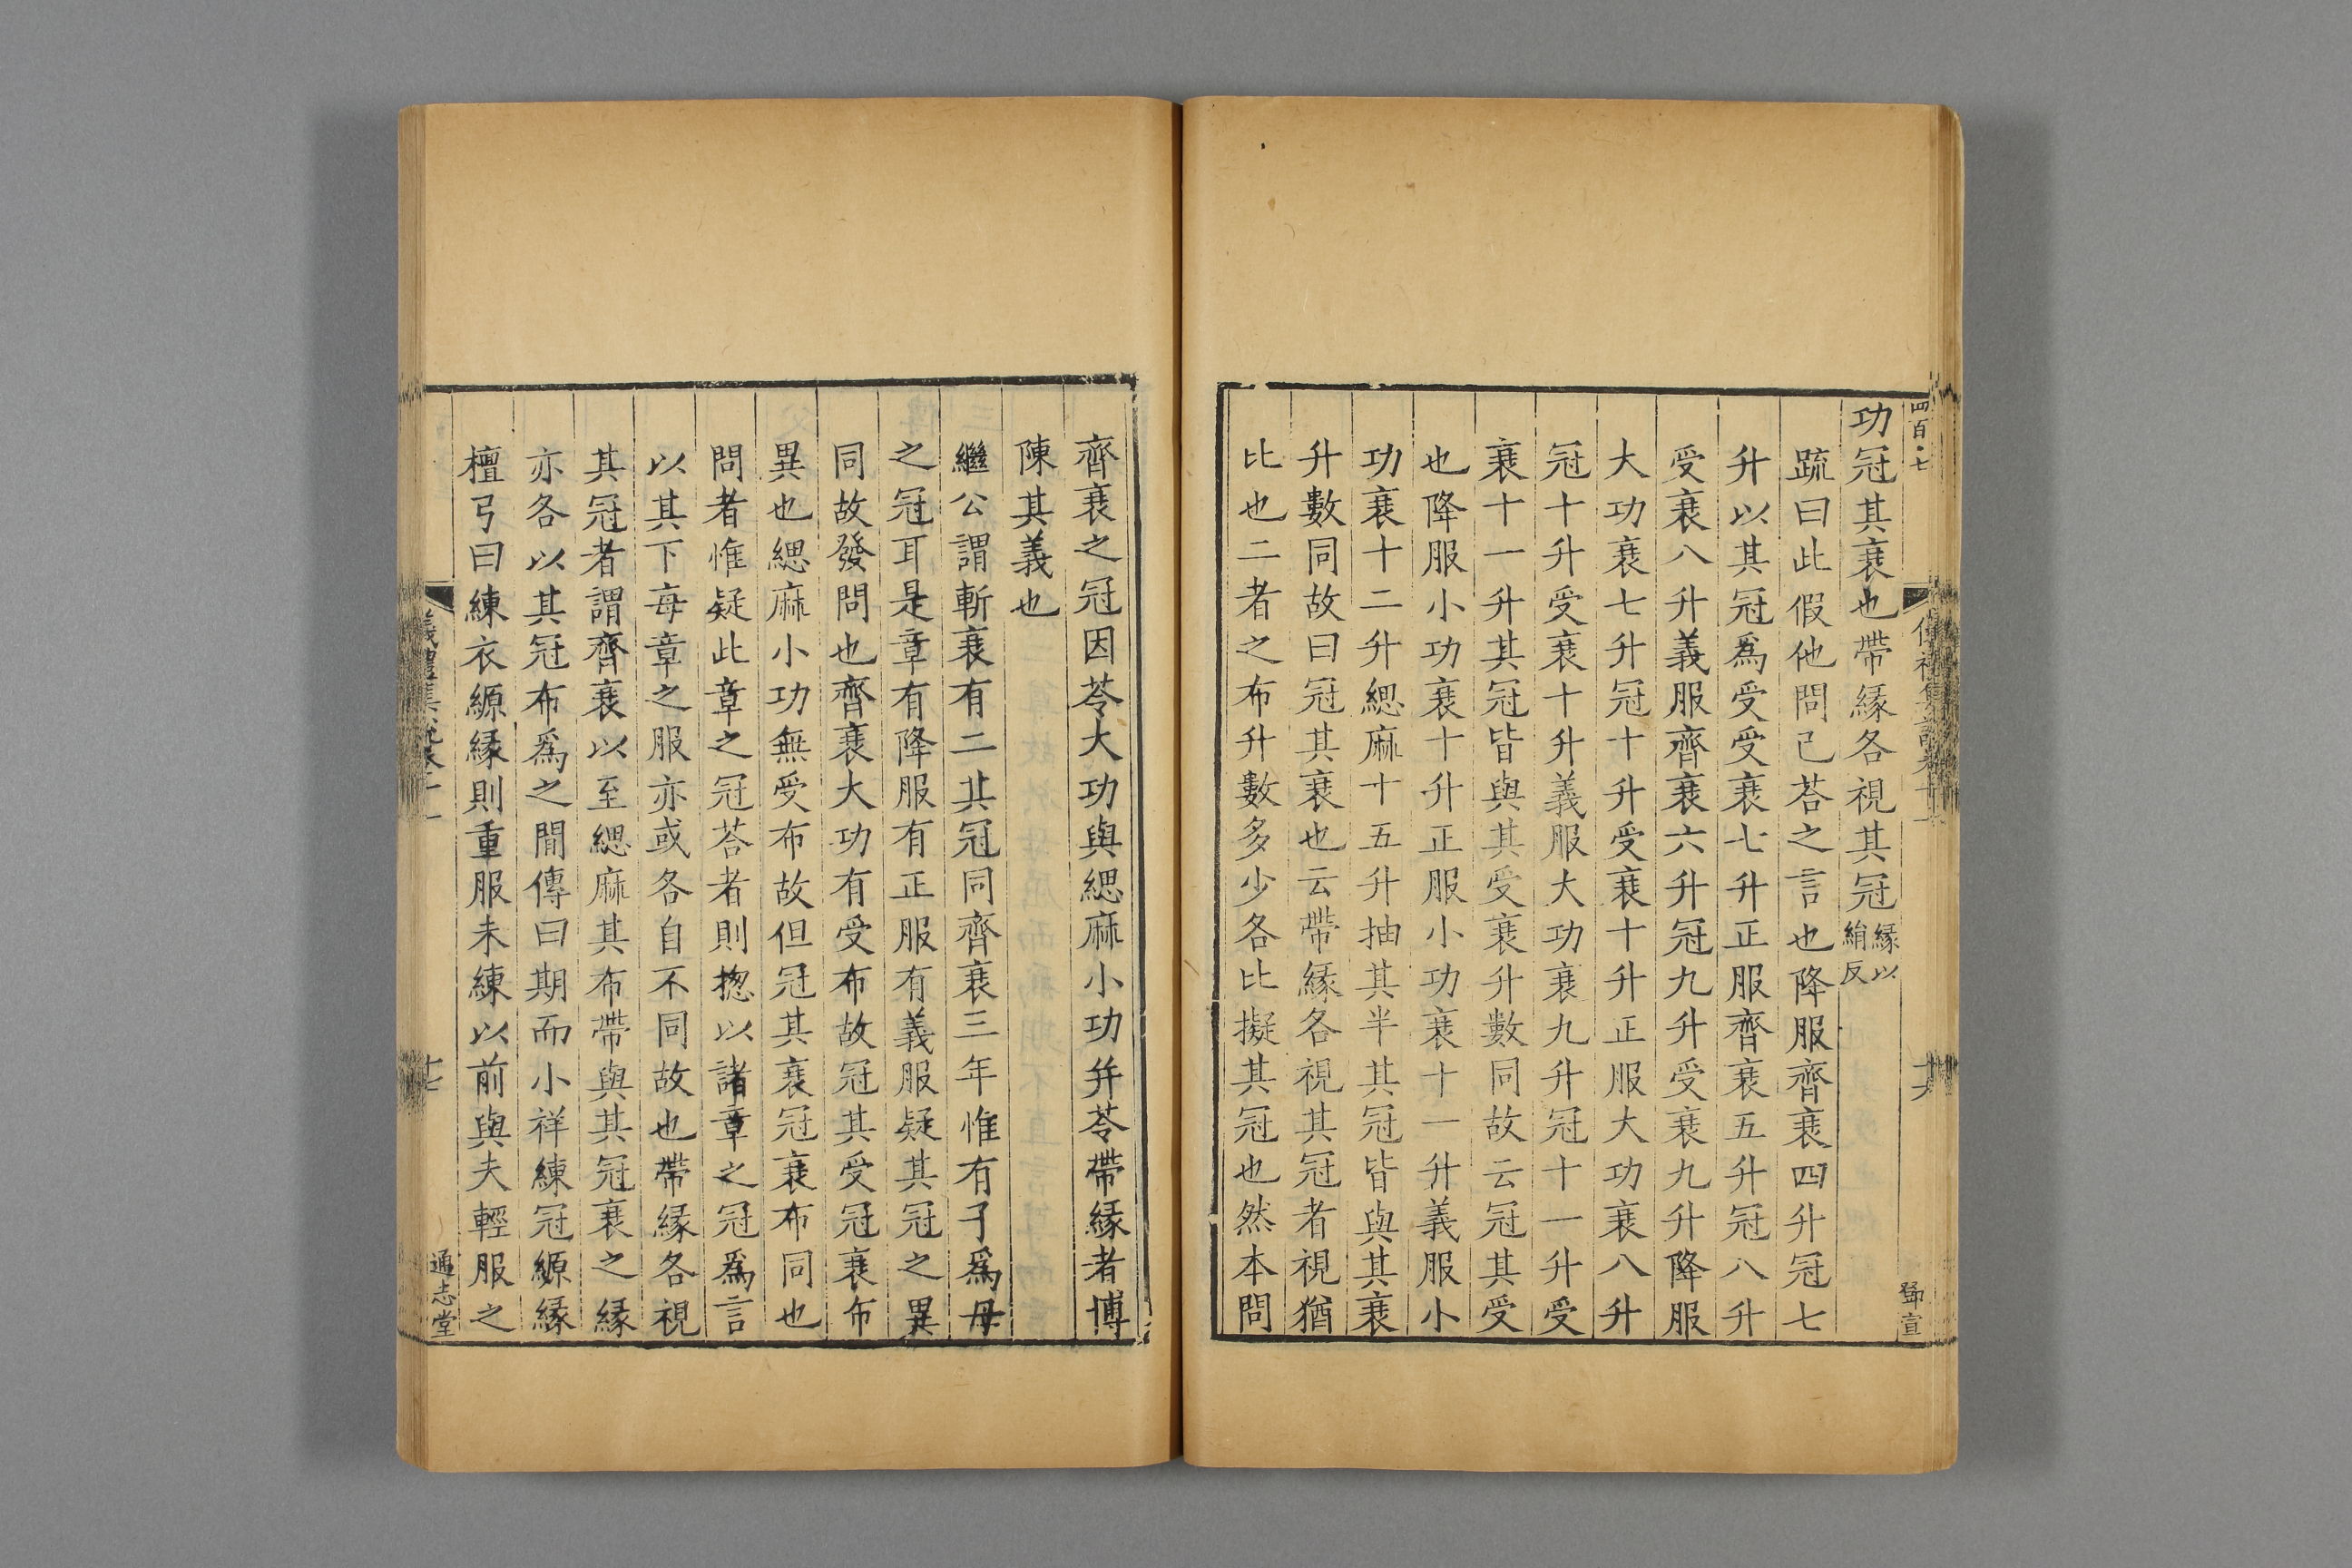 四百·七
功冠其衰也帶緣各視其冠緣以絹反
疏曰此假他問己荅之言也降服齊衰四升冠七
升以其冠爲受受衰七升正服齊衰五升冠八升
受衰八升義服齊衰六升冠九升受衰九升降服
大功衰七升冠十升受衰十升正服大功衰八升
冠十升受衰十升義服大功衰九升冠十一升受
衰十一升其冠皆與其受衰升數同故云冠其受
也降服小功衰十升正服小功衰十一升義服小
功衰十二升緦麻十五升抽其半其冠皆與其衰
升數同故曰冠其衰也云帶緣各視其冠者視猶
比也二者之布升數多少各比擬其冠也然本問
鄧宣
齊衰之冠因荅大功與緦麻小功并荅帶緣者博
陳其義也
繼公謂斬衰有二其冠同齊衰三年惟有子爲母
之冠耳是章有降服有正服有義服疑其冠之異
同故發問也齊衰大功有受布故冠其受冠衰布
異也緦麻小功無受布故但冠其衰冠衰布同也
問者惟疑此章之冠荅者則揔以諸章之冠爲言
以其下每章之服亦或各自不同故也帶緣各視
其冠者謂齊衰以至緦麻其布帶與其冠衰之緣
亦各以其冠布爲之間傳曰期而小祥練冠縓緣
檀弓曰練衣縓緣則重服未練以前與夫輕服之
通志堂